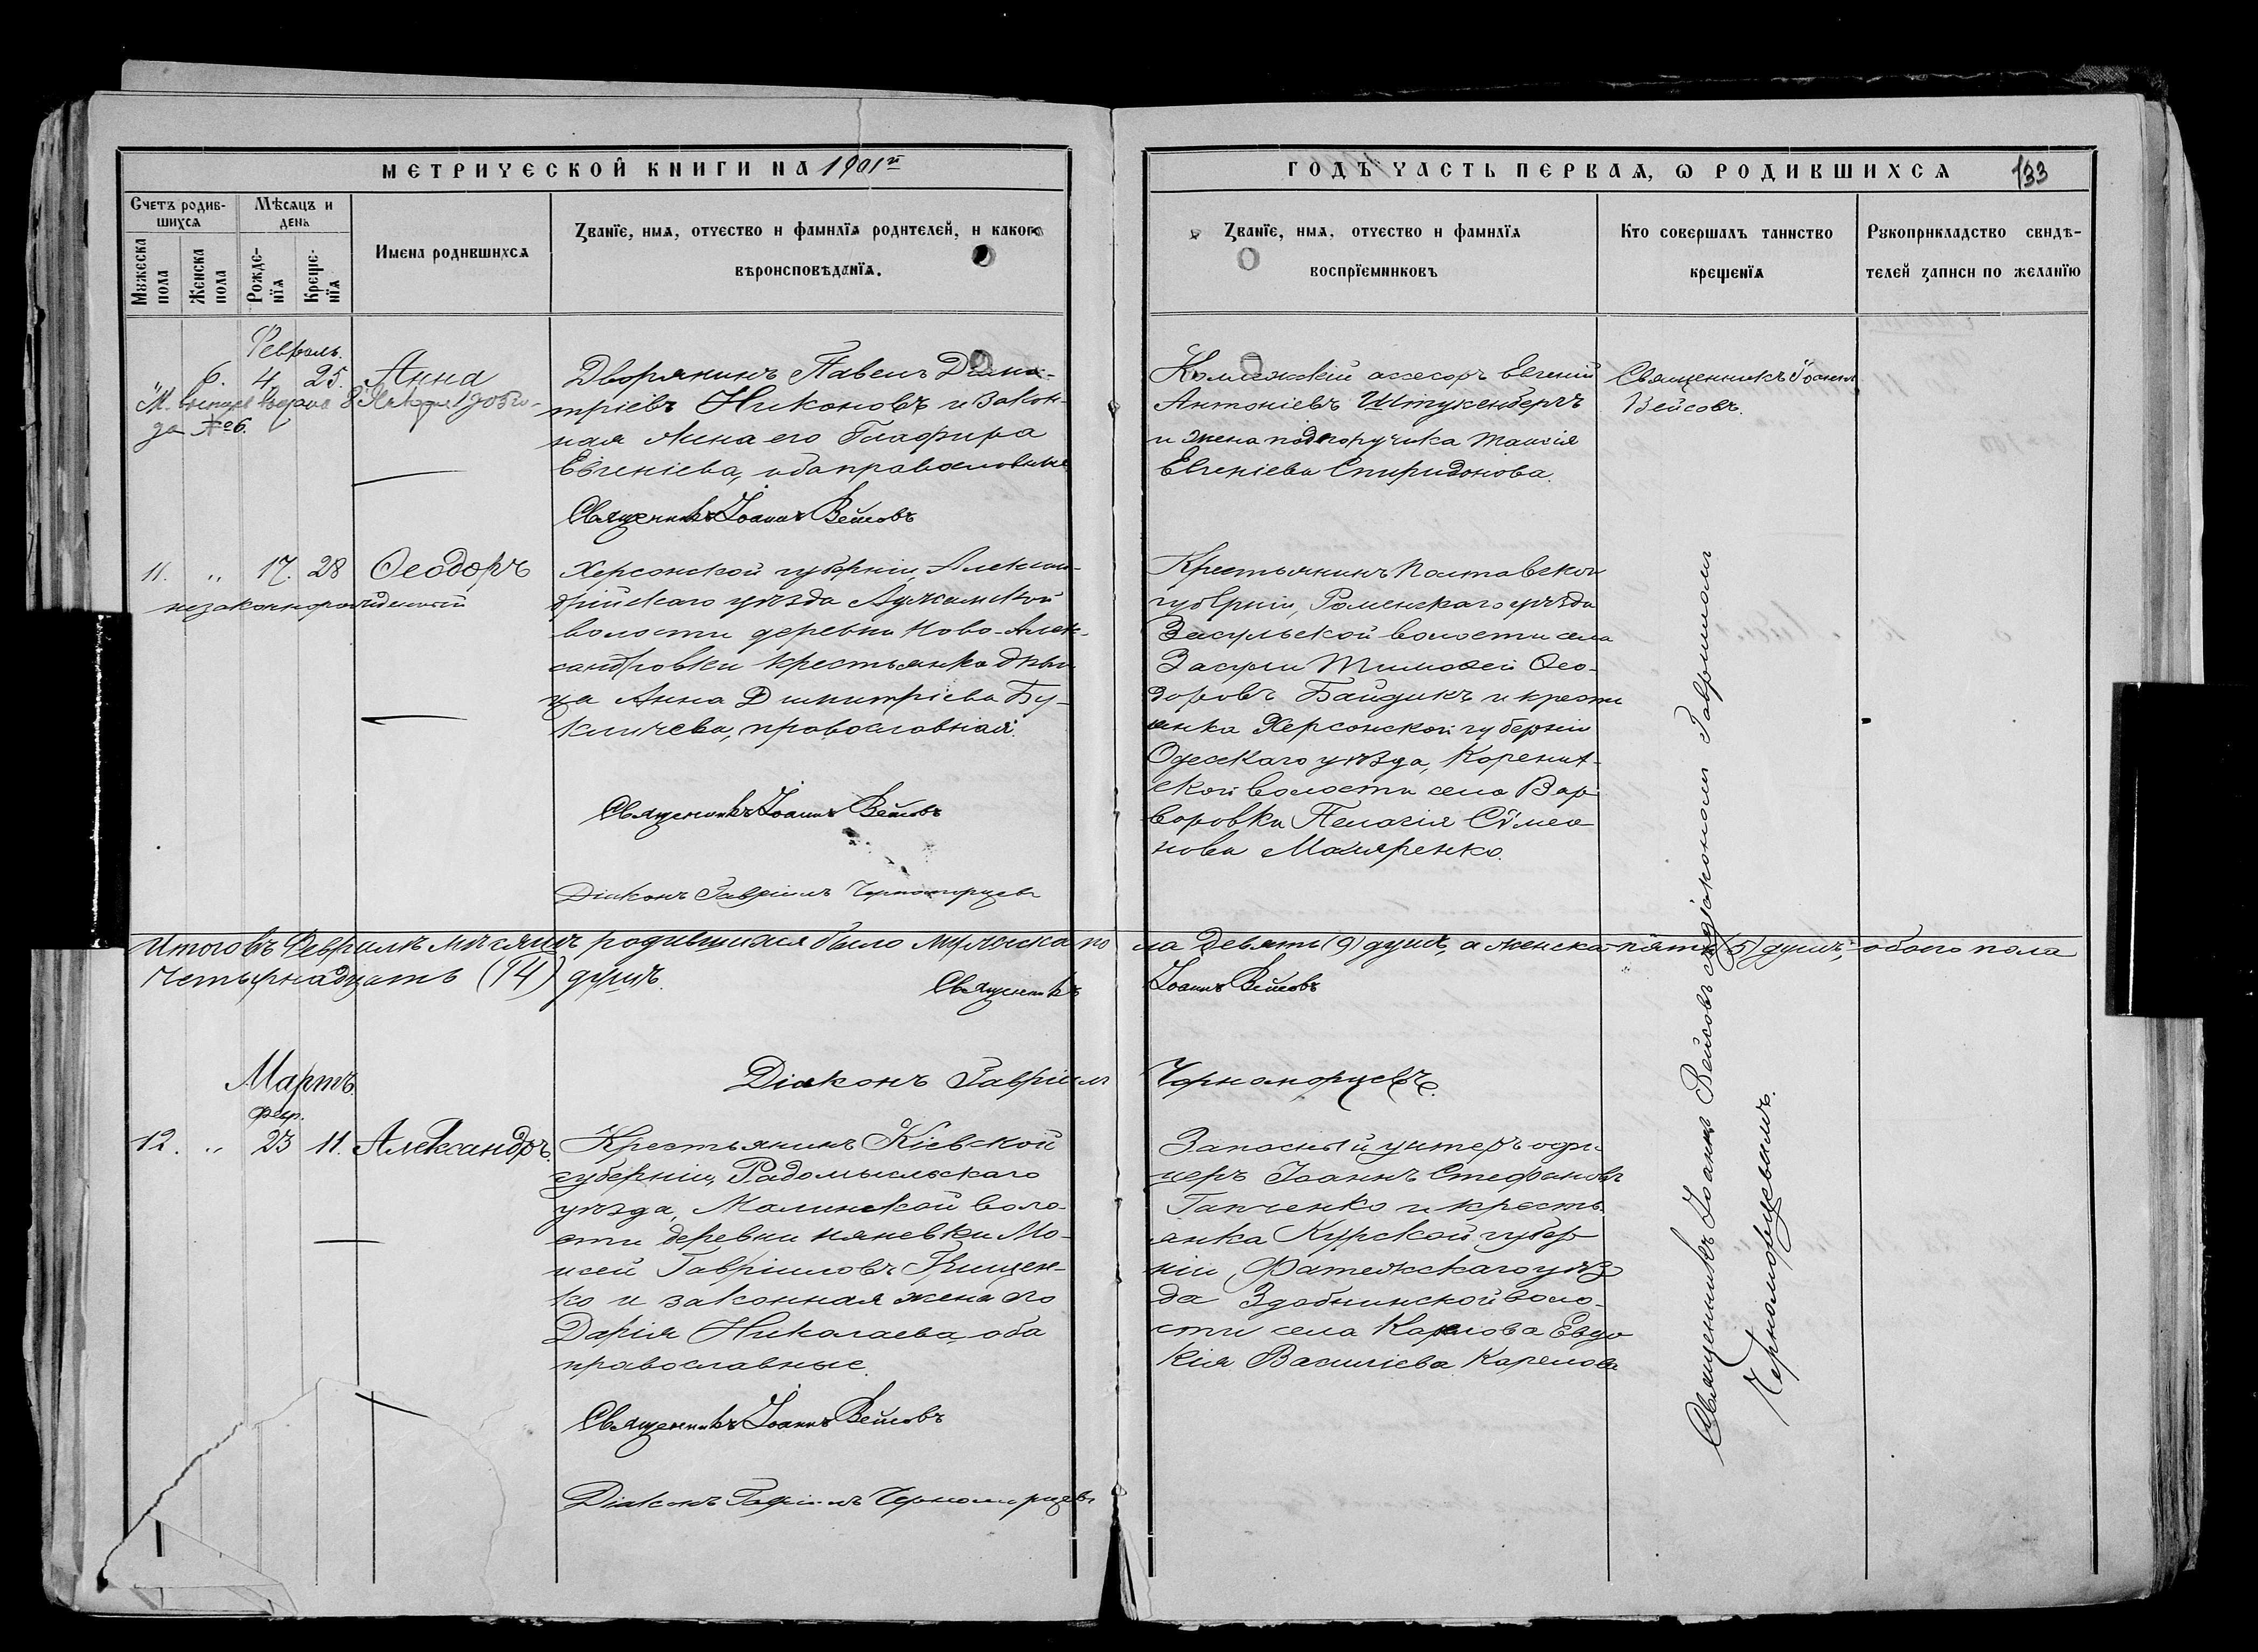 МЕТРИЧЕСКОЙ КНИГИ НА 1901й
ГОДЪ ЧАСТЬ ПЕРВАЯ, Ѡ РОДИВШИХСЯ
133
Счетъ родив-
шихся
Мѣсяцъ и
день
Мужеска
пола
Женска
пола
Рожде-
нїя
Креще-
нїя
Имена родившихся
Званїе, имя, отчество и фамилїя родителей, и какого
вѣроисповѣданїя.
Званїе, имя, отчество и фамилїя
воспрїемниковъ
Кто совершалъ таинство
крещенїя
Рукоприкладство свидѣ-
телей записи по желанїю
Февраль.
6. 4. 25. Анна
1905 го-
да №6.
Дворянинъ Павелъ Дими-
тріевъ Никоновъ и закон-
ная жена его Глафира
Евгеніева, оба православные
Священникъ Іоаннъ Вейсовъ
Коллежскій ассесоръ Евгеній
Антоніевъ Штукенбергъ
и жена подпоручика Таисія
Евгеніева Спиридонова.
Священникъ Іоаннъ
Вейсовъ.
11. " 17. 28 Ѳеодоръ
незаконнорожденный
Херсонской губерніи, Алексан-
дрійскаго уѣзда
волости деревни Ново-Алек-
сандровки крестьянка дѣви-
ца Анна Димитріева Бу-
кличева, православная.
Священникъ Іоаннъ Вейсовъ
Діаконъ Гавріилъ Черноморцевъ
Крестьянинъ Полтавской
губерніи, Роменскаго уѣзда
Засульской волости села
Засули Тимоѳей Ѳео-
доровъ Байдикъ и кресть
янка Херсонской губерніи
Одесскаго уѣзда,
ской волости села Вар
варовки Пелагія Сѵмео
нова Маляренко.
Итого въ Февралѣ мѣсяцѣ родившихся было мужска по
ла девять (9) душъ, а женска пять (5) душъ; обоего пола
Четырнадцать (14) душъ.
Священникъ Іоаннъ Вейсовъ
Діаконъ Гавріилъ Черноморцевъ.
Мартъ.
Февр.
12. " 23 11. Александръ.
Крестьянинъ Кіевской
губерніи, Радомысльскаго
уѣзда, Малинской воло-
сти деревни Пяневки Мо-
исей Гавріиловъ Грищен-
ко и законная жена его
Дарія Николаева, оба
православные.
Священникъ Іоаннъ Вейсовъ
Діаконъ Гавріилъ Черноморцевъ
Запасный унтеръ офи
церъ Іоаннъ Стефановъ
Гапченко и кресть
янка Курской губер
ніи, Фатежскаго уѣз
да воло-
сти села Евдо
кія Василіева
Священникъ Іоаннъ Вейсовъ съ діакономъ Гавріиломъ
Черноморцевымъ.